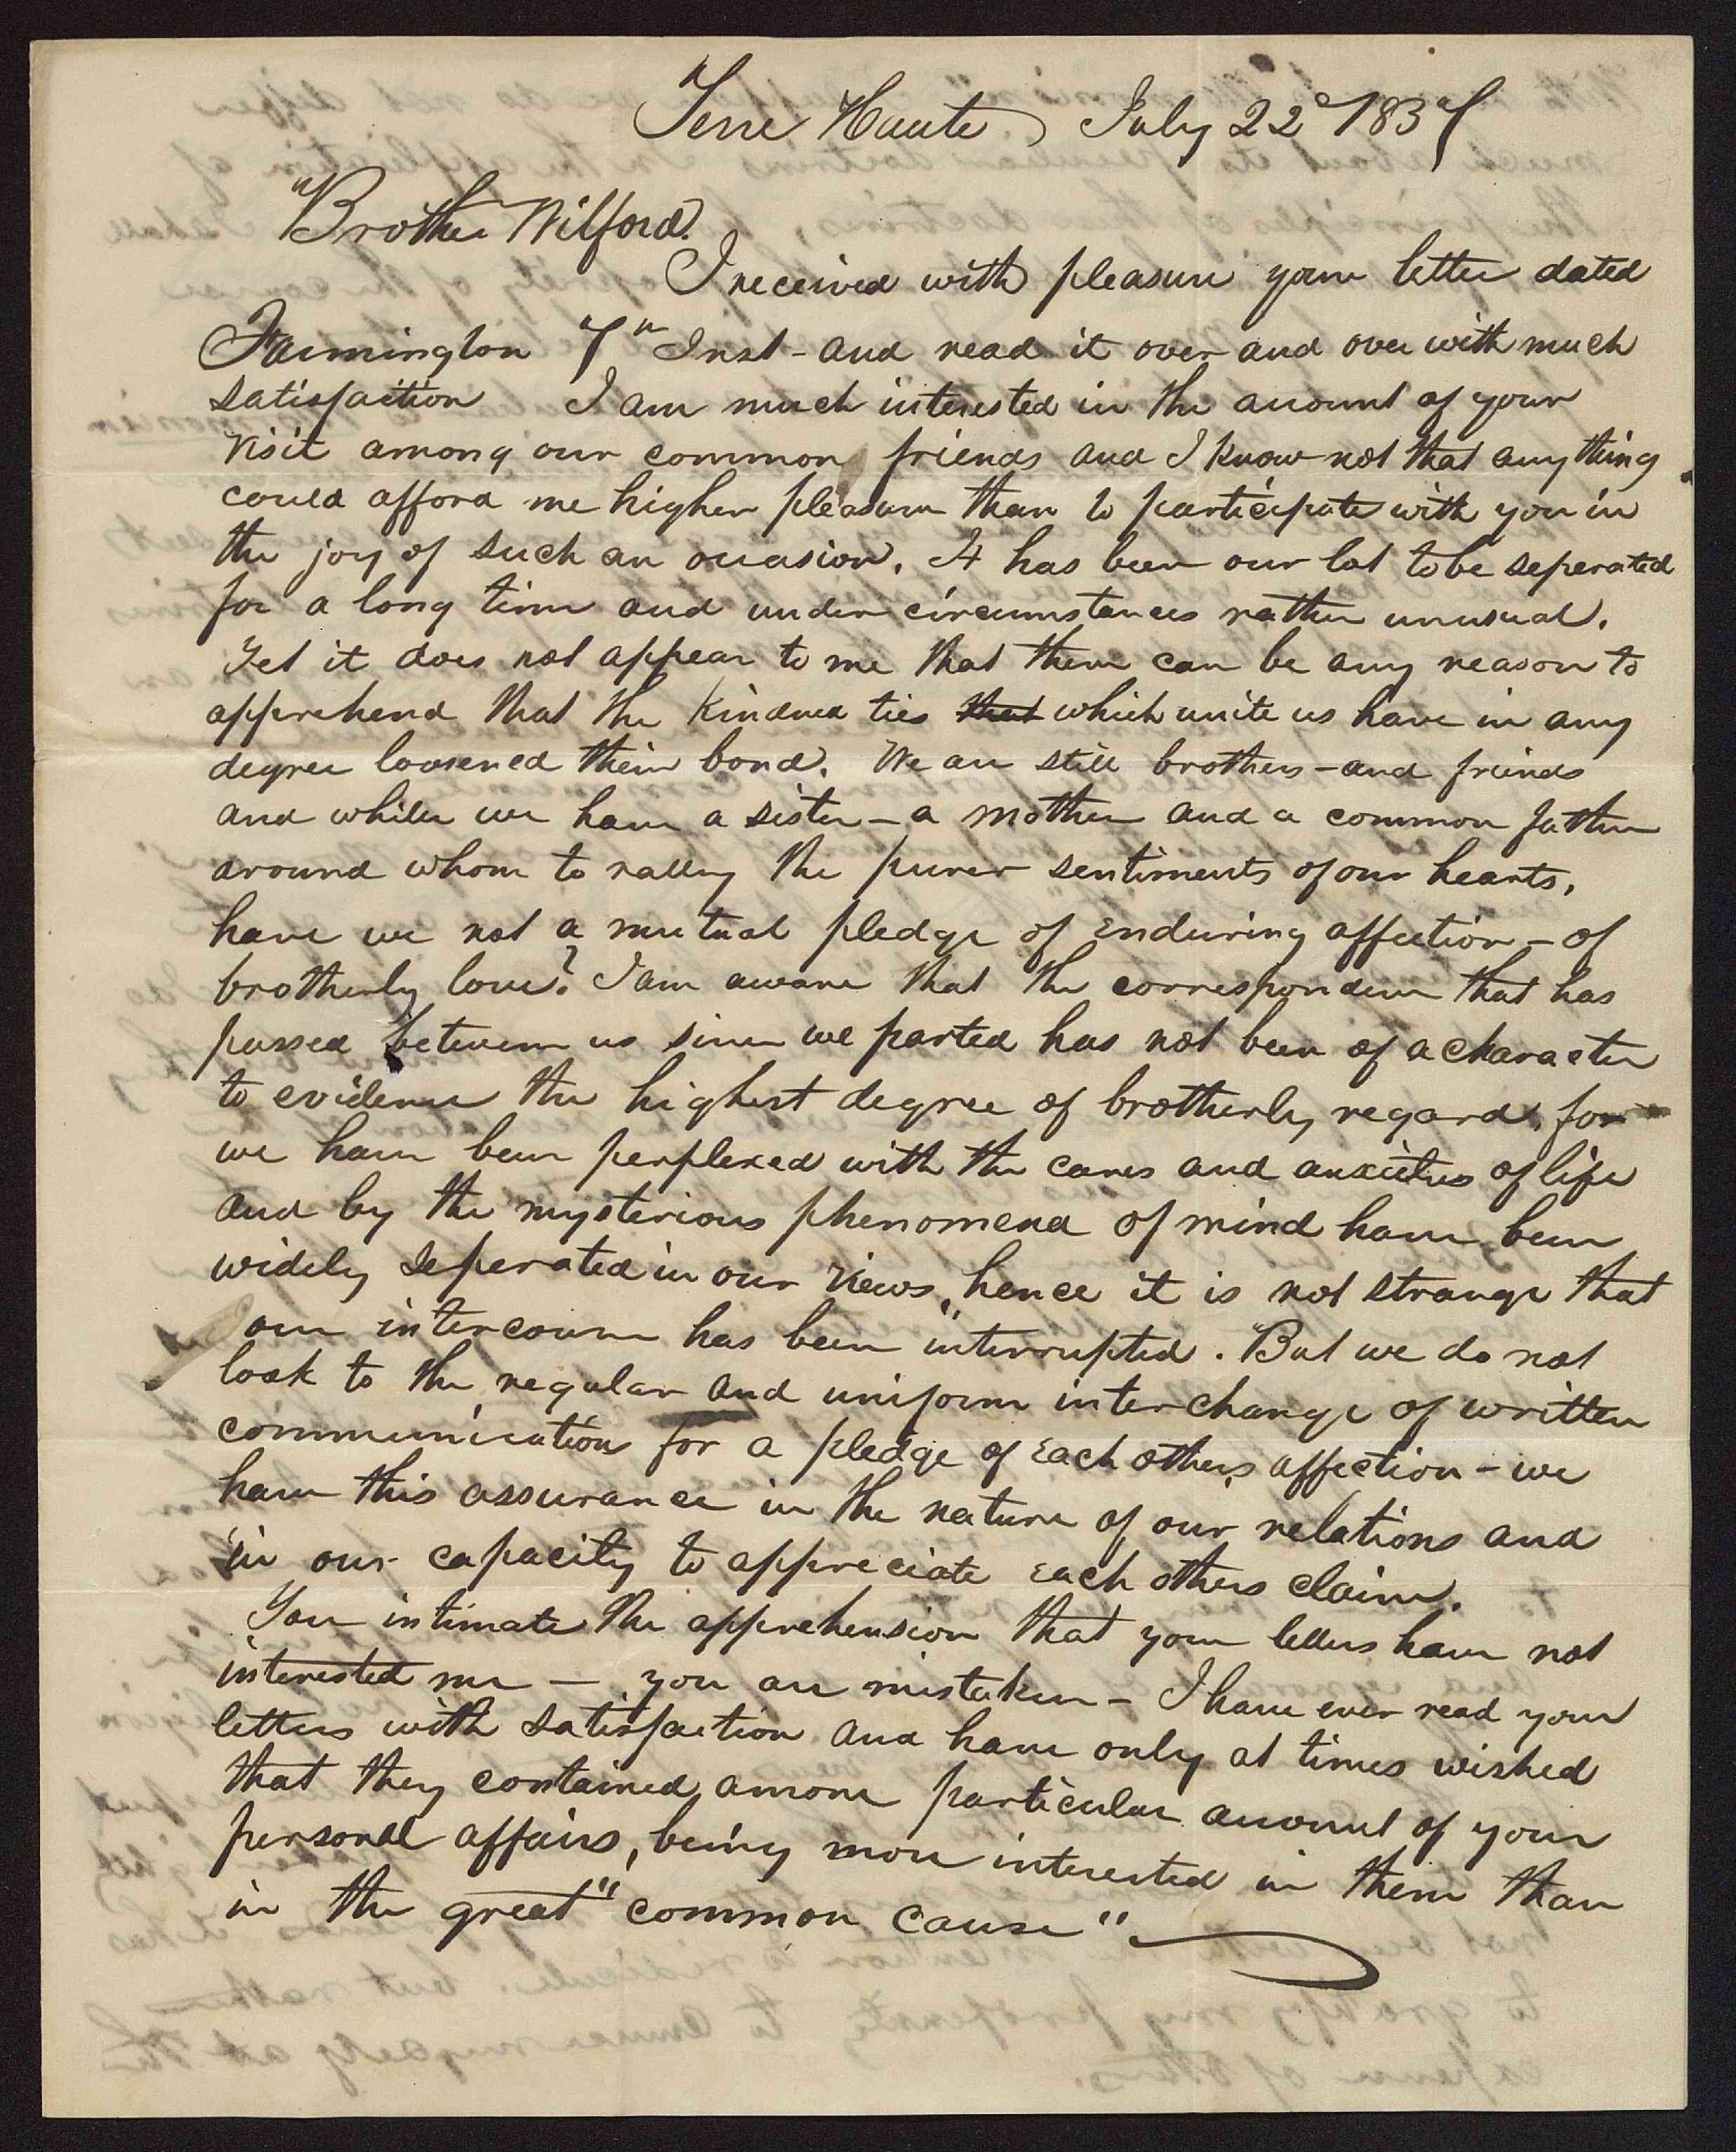 Terre Haute July 22d 1837
Brother Wilford.
I received with pleasure your letter dated
Farmington 7th Inst - and read it over and over with much
satisfaction I am much interested in the account of your
visit among our common friends and I know not that any thing
could afford me higher pleasure than to participate with you in
the joy of such an occasion. It has been our lot to be seperated
for a long time and under circumstances rather unusual.
Yet it does not appear to me that there can be any reason to
apprehend that the kindred ties that which unite us have in any
degree loosened their bond. We are still brothers - and friends
and while we have a sister - a mother and a common father
around whom to rally the purer sentiments of our hearts,
have we not a mutual pledge of enduring affection - of
brotherly love? I am aware that the correspondence that has
passed between us since we parted has not been of a character
to evidence the highest degree of brotherly regard, for
we have been perplexed with the cares and anxieties of life
and by the mysterious phenomena of mind have been
widely seperated in our views, hence it is not strange that
our intercourse has been interrupted. But we do not
look to the regular and uniform interchange of written
communication for a pledge of each others affection - we
have this assurance in the nature of our relations and
in our capacity to appreciate each others claim.
You intimate the apprehension that your letters have not
interested me — you are mistaken - I have ever read your
letters with satisfaction and have only at times wished
that they contained a more particular account of your
personal affairs, being more interested in them than
in the great "common cause"